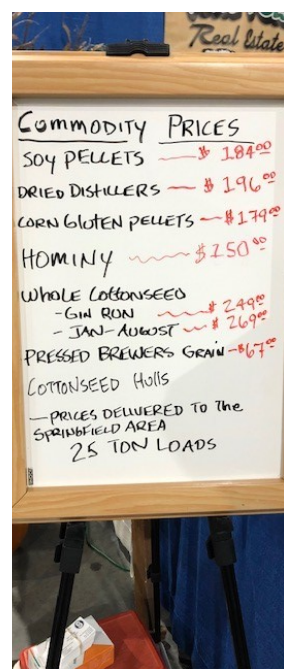 Real Estate
COMMODITY PRICES
SOY PELLETS $ 184.00
DRIED DISTILLERS $ 196.00
CORN GLUTEN PELLETS $ 179.00
HOMINY $ 150.00
WHOLE COTTONSEED
- GIN RUN $ 249.00
- JAN-AUGUST $ 269.00
PRESSED BREWERS GRAIN - $67.00
COTTONSEED Hulls
- PRICES DELIVERED TO The
SPRINGFIELD AREA
25 TON LOADS